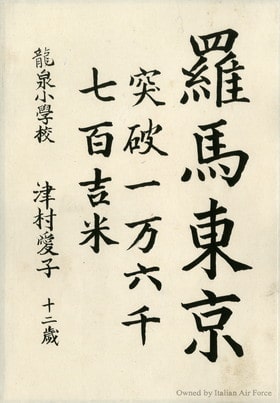 羅馬東京
突破一万六千
七百吉米
龍泉小學校 津村愛子 十二歳
Owned by Italian Air Force